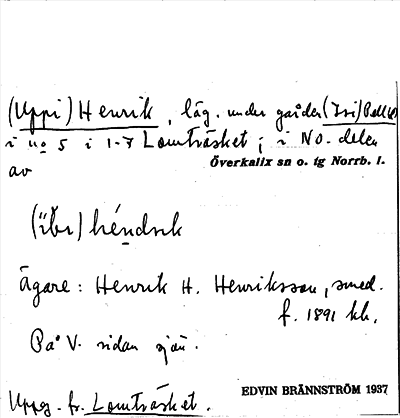 (Uppi) Henrik, läg. under gården (Isi) Pell(e)
i no 5 i 1-7 Lomträsket; i NO. delen
Överkalix sn o. tg Norrb. l.
av
(ĭƀı) héndrk
Ägare: Henrik H. Henriksson, smed.
f. 1891 kk,
På V. sidan sjön.
Uppg. fr. Lomträsket.
EDVIN BRÄNNSTRÖM 1937